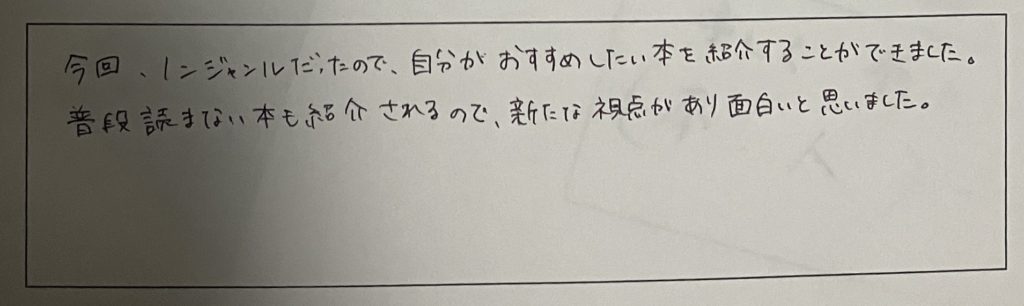 今回、ノンジャンルだったので、自分がおすすめしたい本を紹介することができました。
普段読まない本も紹介されるので、新たな視点があり面白いと思いました。